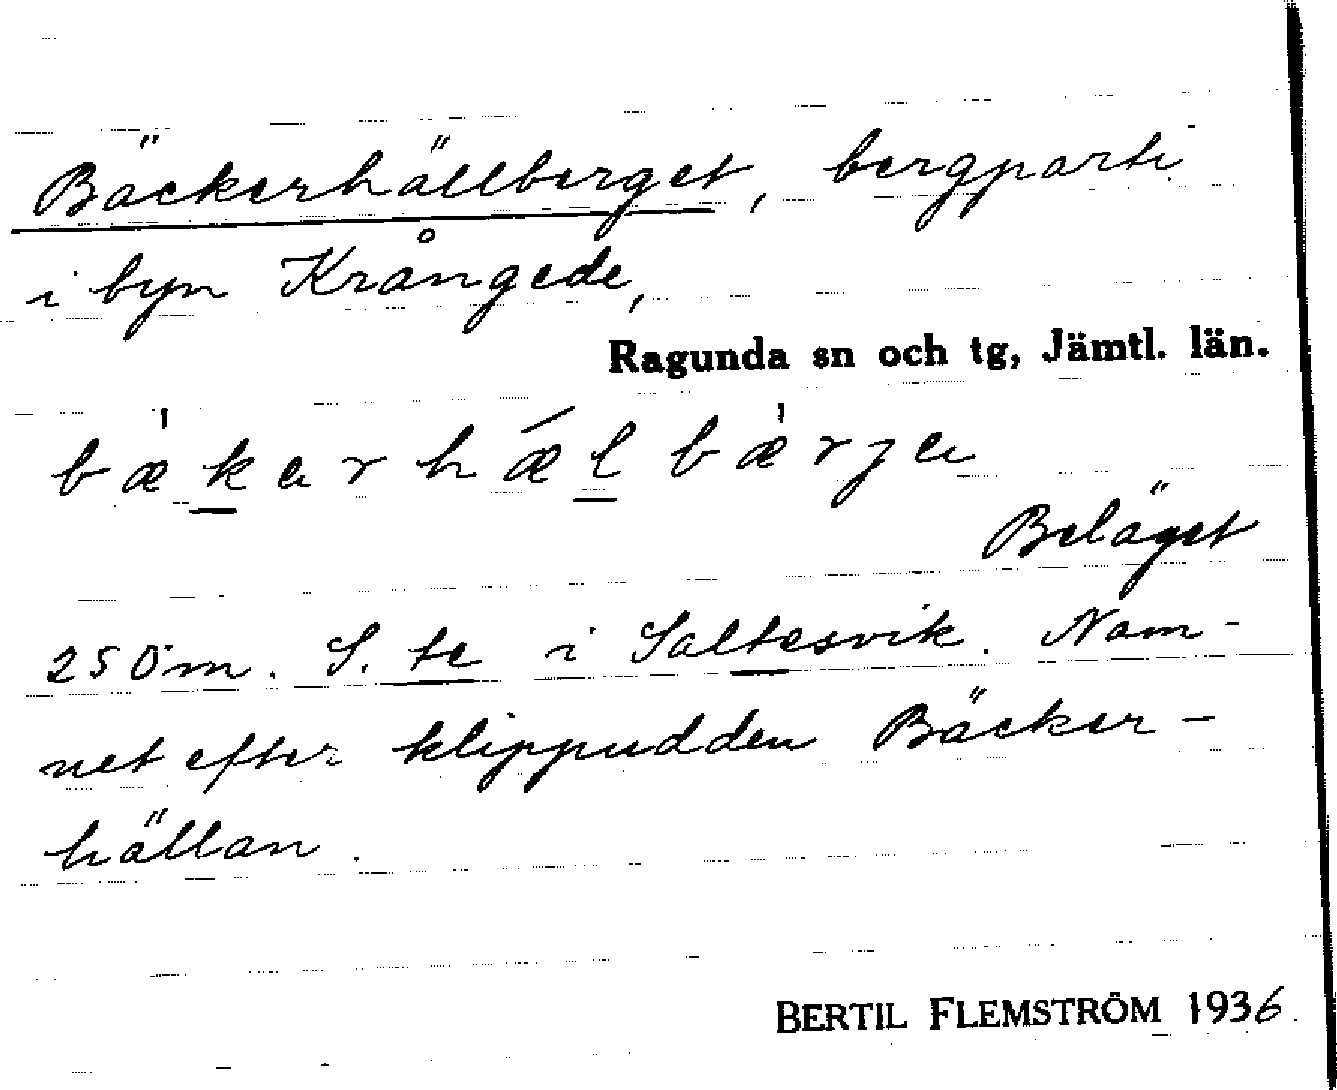 Bäckerhällberget, bergparti
i byn Krångede,
Ragunda sn och tg, Jämtl. län.
bækerhælbærjer
Beläget
250 m. S. te i Saltesvik. Nam-
net efter klippudden Bäcker-
hällan.
BERTIL FLEMSTRÖM 1936.